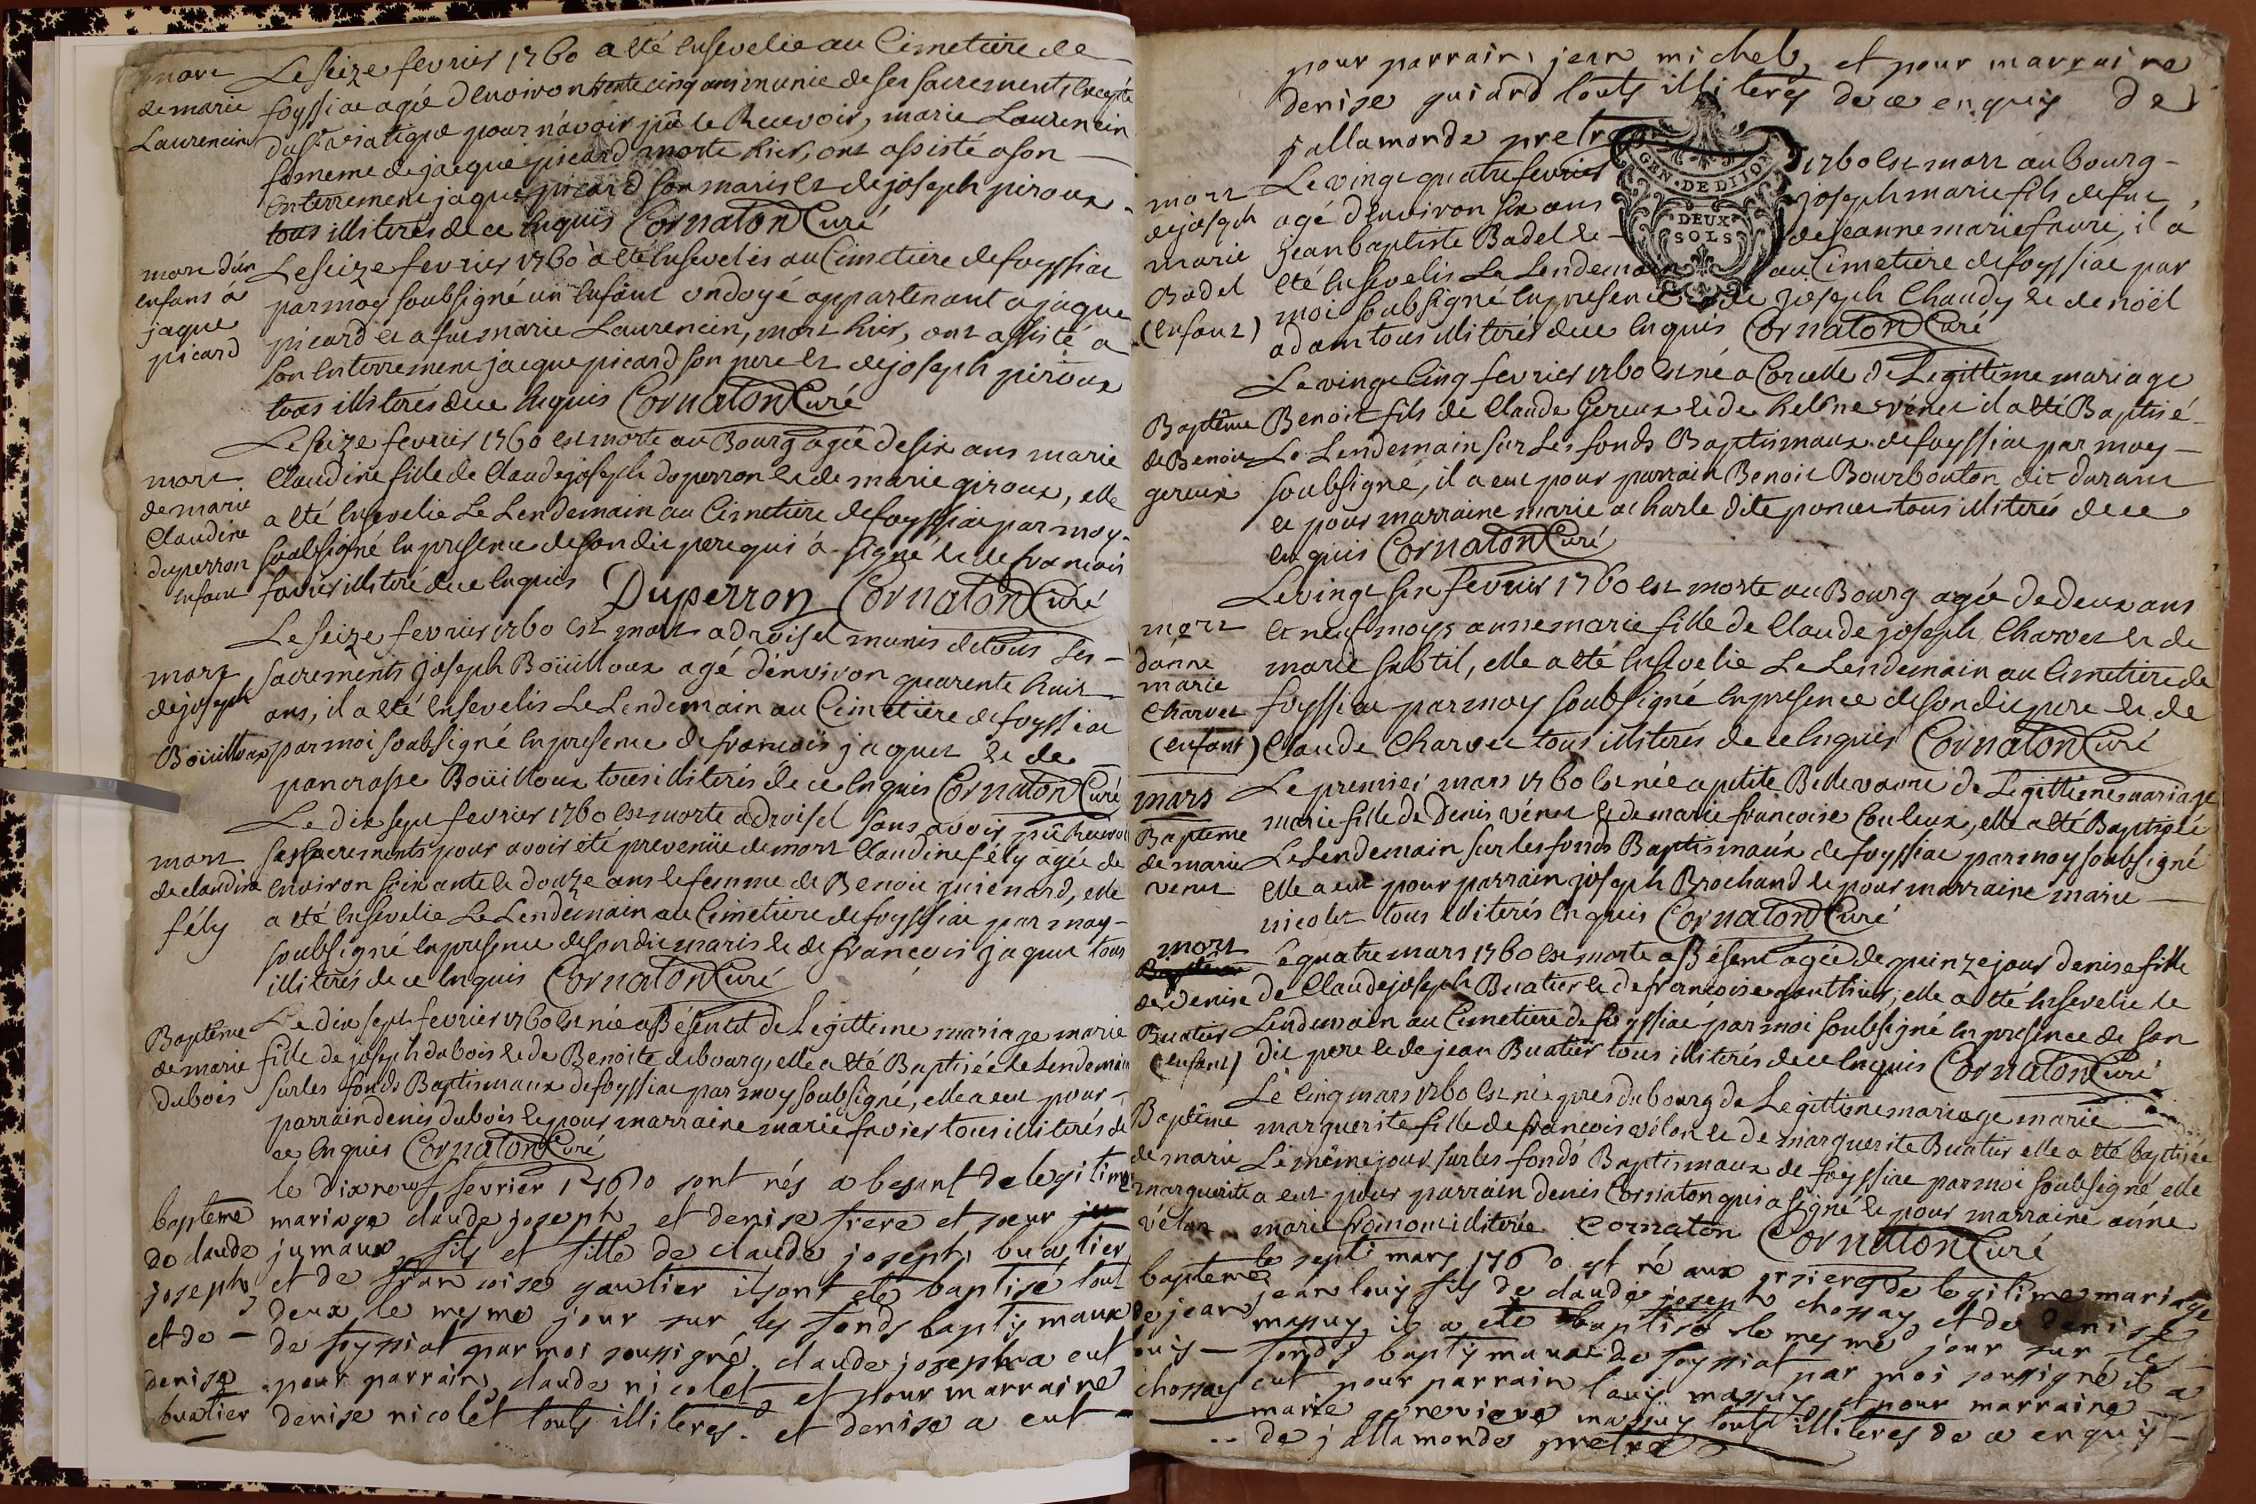 mort
de marie
Laurencin
Le seize fevrier 1760 a été ensevelie au Cimetiere de
foyssiac agée d'environ trente cinq ans munie de ses sacrements, excepté
du st viatique pour n'avoir pû le Recevoir, marie Laurencin
femme de jacque picard morte hier, ont assisté a son
enterrement jaque picard son maris et de joseph piroux
tous illiterés de ce enquis Cornaton Curé
mort d'un
enfans à
jaque
picard
Le seize fevrier 1760 à été ensevelis au Cimetiere de foyssiac
par moy soubsigné un enfant ondoyé appartenant a jaque
picard et a fue marie Laurencin, mort hier, ont assisté a
son enterrement jacque picard son pere et de joseph piroux
tous illiterés de ce enquis Cornaton Curé
mort
de marie
Claudine
duperron
enfant
Le seize fevrier 1760 est morte au Bourg agée de six ans marie
Claudine fille de Claude joseph duperron et de marie giroux, elle
a été ensevelie Le Lendemain au Cimetiere de foyssiac par moy
soubsigné en presence de son dit pere qui à signé et de francois
favier illiteré de ce enquis Duperron Cornaton Curé
mort
de joseph
Boüilloux
Le seize fevrier 1760 est mort a droisel munis de tous ses
sacrements joseph Boüilloux agé d'environ quarente huit
ans, il a été ensevelis Le Lendemain au Cimetiere de foyssiac
par moi soubsigné en presence de francois jaquet et de
pancrasse Boüilloux tous illiterés de ce enquis Cornaton Curé
mort
de claudine
féty
Le dix sept fevrier 1760 est morte a droisel sans avoir pû Recevoir
ses sacrements pour avoir eté prevenüe de mort Claudine féty agée de
environ soixante et douze ans et femme de Benoit guienard, elle
a été ensevelie Le Lendemain au Cimetiere de foyssiac par moy
soubsigné en presence de son dit maris et de francois jaquet tous
illiterés de ce enquis Cornaton Curé
Baptême
de marie
dubois
Le dix sept fevrier 1760 est née a Bésent de Legittime mariage marie
fille de joseph dubois et de Benoite debourg, elle a été Baptisée Le Lendemain
sur les fonds Baptismaux de foyssiac par moy soubsigné, elle a eut pour
parrain denis dubois et pour marraine marie favier tous illiterés de
ce enquis Cornaton Curé
bapteme
de claude
joseph
et de
denise
buatier
le dixneuf fevrier 1760 sont nés a besant de legitime
mariage claude joseph et denise frere et sœur
jumaux fils et fille de claude joseph buatier
et de francoise gautier ils ont été baptisé tout
deux le mesme jour sur les fonds baptismaux
de foyssiat par moi soussigné. claude joseph a eut
pour parrain claude nicolet et pour marraine
denise nicolet touts illiteres. et denise a eut
pour parrain jean michel, et pour marraine
denise guiard touts illiterés de ce enquis de
jallamonde pretre
GEN · DE DIJON
DEUX
SOLS
mort
de joseph
marie
Badel
(enfant)
Le vingt quatre fevrier 1760 est mort au bourg
agé d'environ six ans joseph marie fils de fue
jean baptiste Badel et de jeanne marie favre, il a
été ensevelis Le Lendemain au Cimetiere de foyssiac par
moi soubsigné en presence de joseph Chaudy et de noël
adam tous illiterés de ce enquis Cornaton Curé
Baptême
de Benoit
gereux
Le vingt cinq fevrier 1760 est né a Corcelle de Legittime mariage
Benoit fils de Claude Gereux et de helene vénet il a été Baptisé
Le Lendemain sur Les fonds Baptismaux de foyssiac par moy
soubsigné, il a eut pour parrain Benoit Bourbouton dit durant
et pour marraine marie acharle dite poncet tous illiterés de ce
enquis Cornaton Curé
mort
d'anne
marie
Charvet
(enfant)
Le vingt six fevrier 1760 est morte au Bourg agée de deux ans
et neuf moys anne marie fille de Claude joseph Charvet et de
marie subtil, elle a été ensevelie Le Lendemain au Cimetiere de
foyssiac par moy soubsigné en presence de son dit pere et de
Claude Charvet tous illiterés de ce enquis Cornaton Curé
mars
Baptême
de marie
venet
Le premier mars 1760 est née a petite Bellevavre de Legittime mariage
marie fille de Denis vénet et de marie francoise Couleux, elle a été Baptisée
Le Lendemain sur les fonds Baptismaux de foyssiac par moy soubsigné
elle a eut pour parrain joseph Brochand et pour marraine marie
nicolet tous illiterés enquis Cornaton Curé
mort
de denise
Buatier
(enfant)
Le quatre mars 1760 est morte a Bésent agée de quinze jour denise fille
de Claude joseph Buatier et de francoise gautthier, elle a été ensevelie le
Lendemain au Cimetiere de foyssiac par moi soubsigné en presence de son
dit pere et de jean Buatier tous illiterés de ce enquis Cornaton Curé
Baptême
de marie
marguerite
vélon
Le cinq mars 1760 est née pres du bourg de Legittime mariage marie
marguerite fille de francois vélon et de marguerite Buatier elle a été baptisée
Le même jour sur les fonds Baptismaux de foyssiac par moi soubsigné elle
a eut pour parrain denis Cornaton qui a signé et pour marraine anne
marie fromont illiterée Cornaton Cornaton Curé
bapteme
de jean
louis
chossay
le sept mars 1760 est né aux prsieres de legitime mariage
jean louis fils de claude joseph chossay et de denise
massuy, il a été baptisé le mesme jour sur les
fonds baptismaux de foyssiat par moi soussigné il a
eut pour parrain louis massuy et pour marraine
marie genevieve massuy touts illiteres de ce enquis
de jallamonde pretre